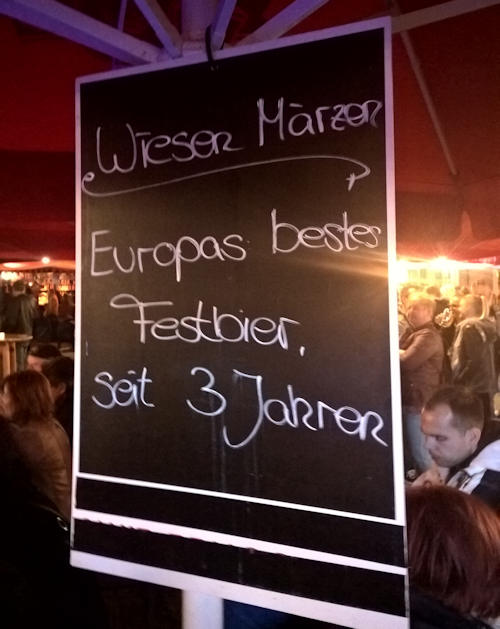 Wiesen Märzen
Europas bestes
Festbier,
seit 3 Jahren